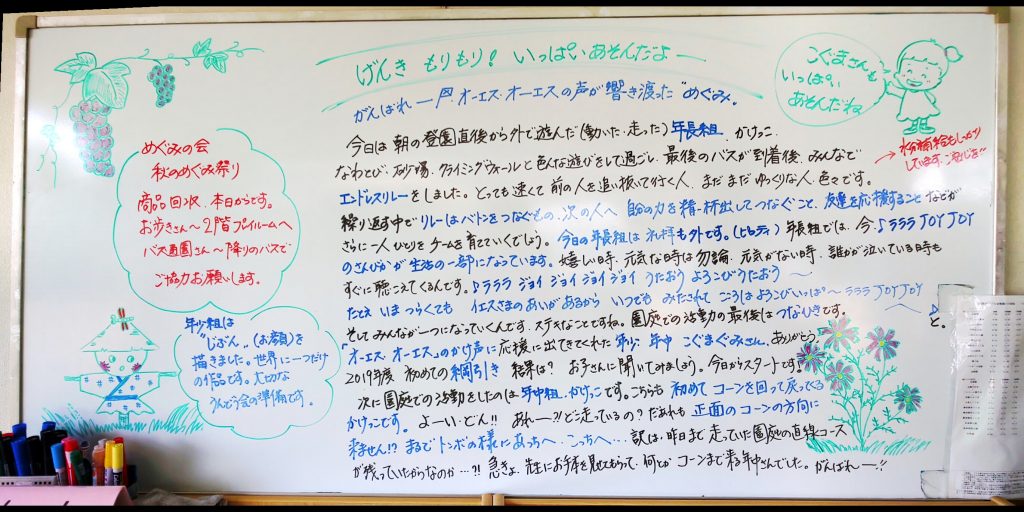 げんき もりもり! いっぱいあそんだよー
がんばれー オーエス・オーエスの声が響き渡った"めぐみ。
今日は 朝の登園直後から外で遊んだ(動いた・走った)年長組。かけっこ、
なわとび、砂場、クライミングウォールと色んな遊びをして過ごし、最後のバスが到着後、みんなで
エンドレスリレーをしました。とっても速くて 前の人を追い抜いて行く人、まだまだ ゆっくりな人、色々です。
繰り返す中で リレーはバトンをつなぐもの、次の人へ 自分の力を精一杯出してつなぐこと、友達を応援することなどが
さらに一人ひとりを チームを育てていくでしょう。今日の年長組は 礼拝も外です。(ピロティ) 年長組では、今、♪ラララJOYJOY
のさんびかが 生活の一部になっています。嬉しい時、元気な時は勿論、元気がない時、誰かが泣いている時も
すぐに聴こえてくるんです。♪ラララ ジョイ ジョイ ジョイ ジョイ うたおう よろこびうたおう 〜
たとえ いま つらくても イエスさまの あいが あるから いつでも みたされて こころは よろこびいっぱい〜 ラララ JOY JOY
〜♪ と。
そして みんなが一つになっていくんです。ステキなことですね。園庭での活動の最後は つなひきです。
「オーエス・オーエス」のかけ声に 応援に出てきてくれた 年少・年中 こぐまぐみさん、ありがとう。
2019年度 初めての綱引き 結果は? お子さんに聞いてみましょう。今日からスタートです!
次に園庭での活動をしたのは 年中組。かけっこです。こちらも 初めて コーンを回って戻ってくる
かけっこです。よーい・どん!! あれー?!どこ走っているの?だあれも 正面のコーンの方向に
来ません!? まるで トンボの様に あっちへ…こっちへ… 訳は、昨日まで 走っていた園庭の直線コース
が残っていたからなのか…?! 急きょ、先生にお手本を見せてもらって、何とか コーンまで来る年中さんでした。がんばれー!!
こぐまさんも
いっぱい
あそんだね
水分補給もしっかり
しています。
めぐみの会
秋のめぐみ祭り
商品回収、本日からです。
お歩きさん〜2階プレイルームへ
バス通園さん〜降りのバスで
ご協力お願いします。
年少組は
"じぶん"(お顔)を
描きました。世界に一つだけ
の作品です。大切な
うんどう会の準備です。